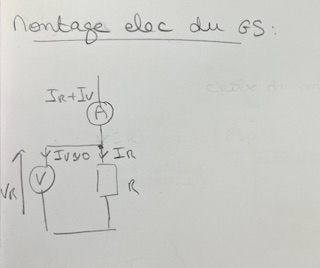 Montage elec du GS:
IR+IV
A
IV≈0 IR
V
VR
R